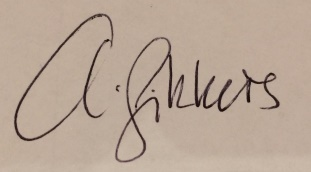 A. Fikkers